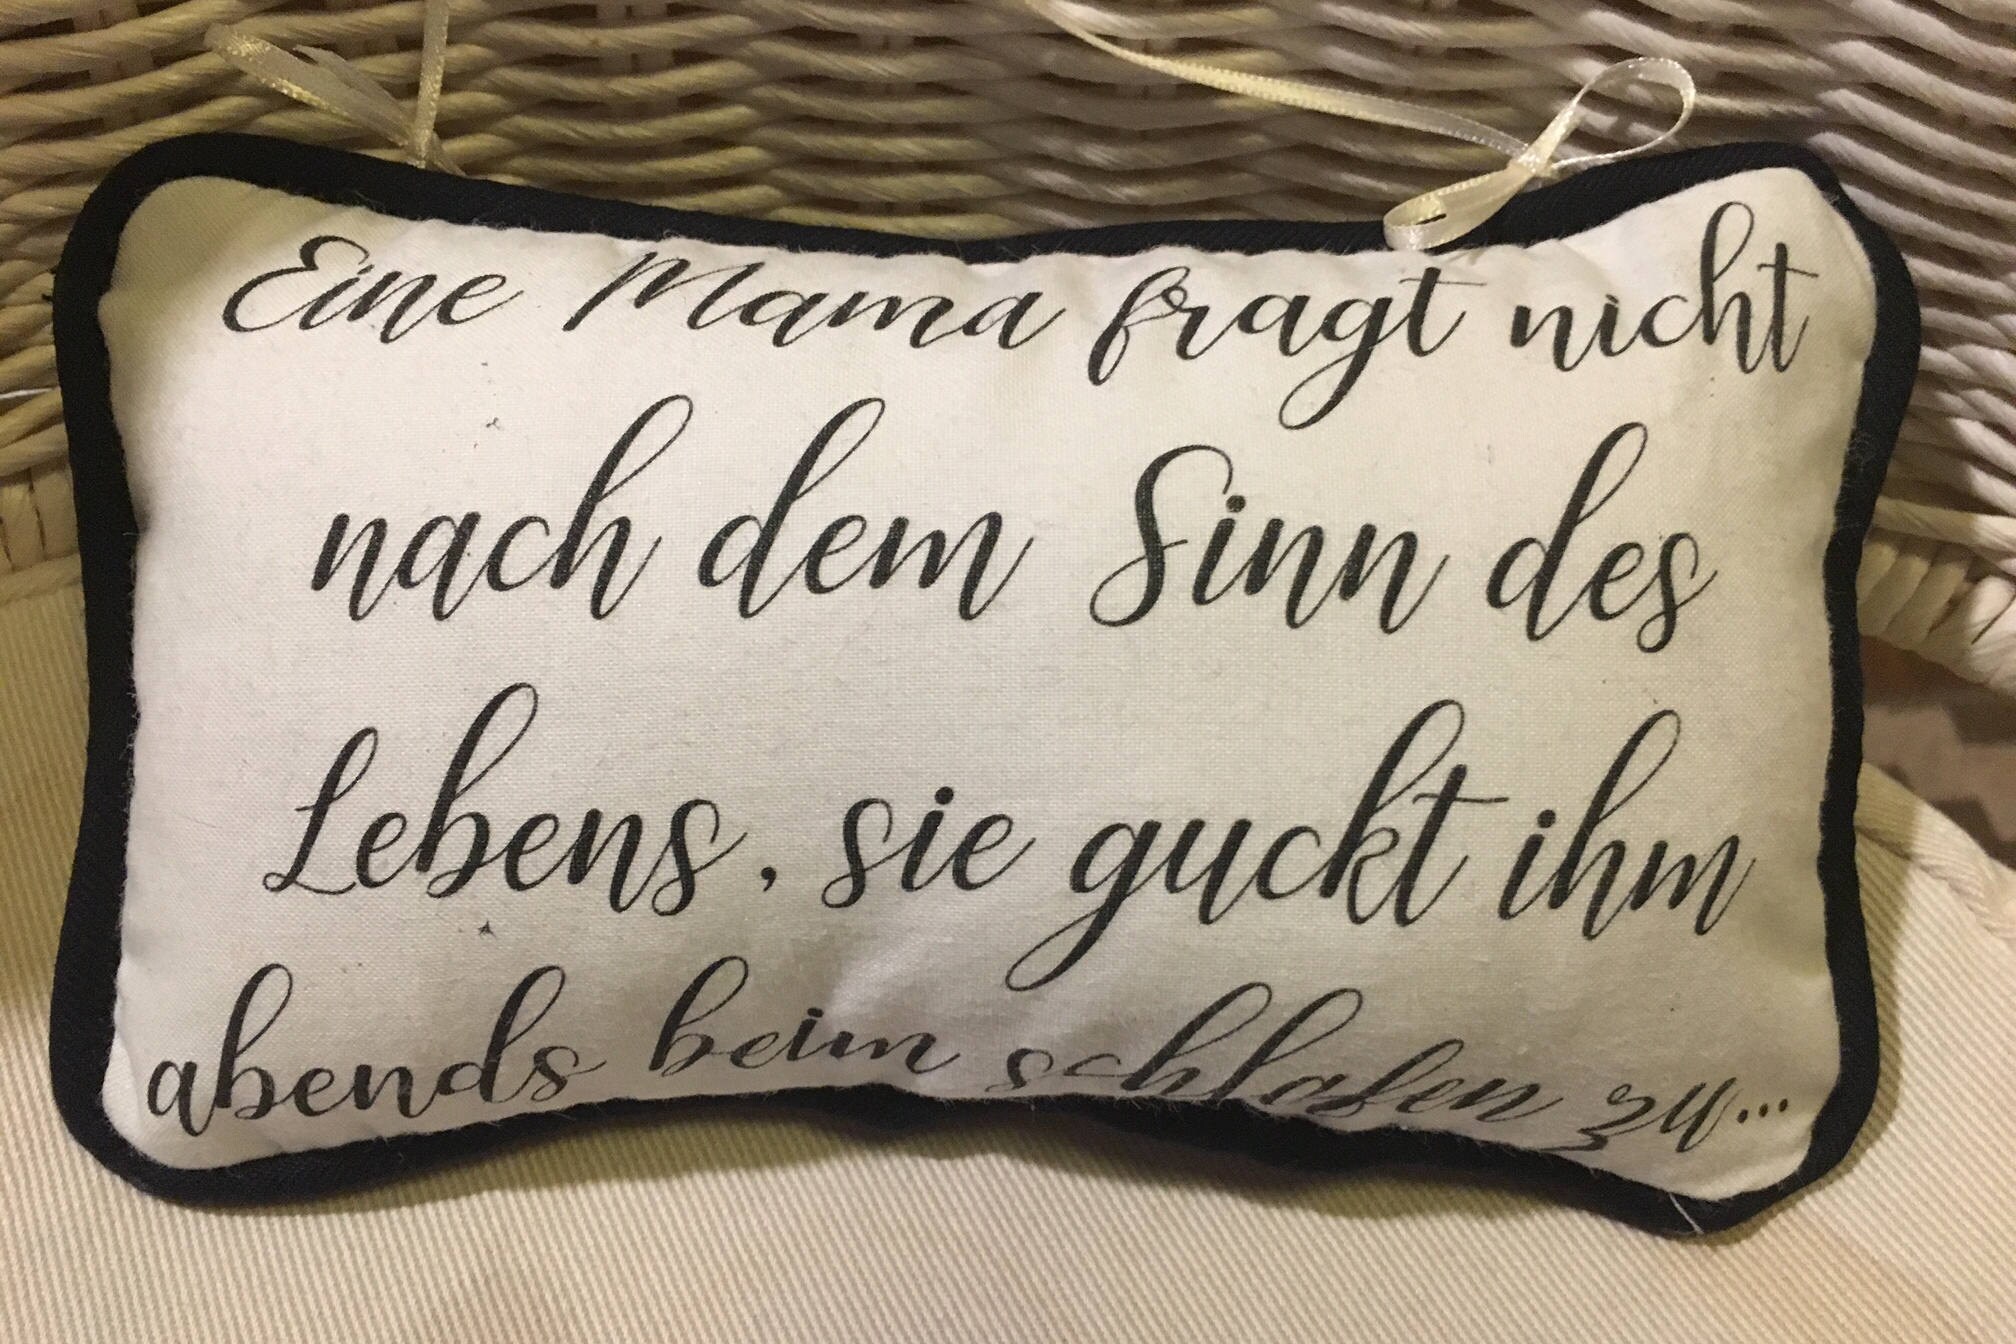 Eine Mama fragt nicht
nach dem Sinn des
Lebens, sie guckt ihm
abends beim schlafen zu...